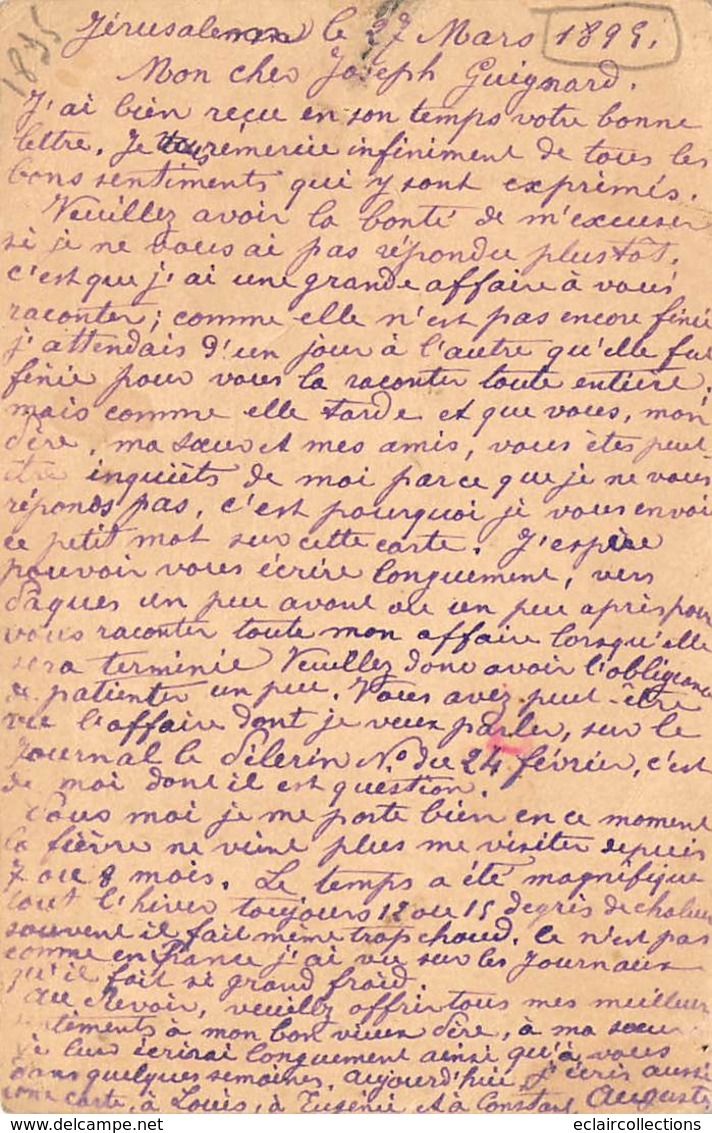 1895
Jérusalem le 27 Mars 1895.
Mon cher Joseph Guignard.
J'ai bien reçu en son temps votre bonne
lettre. Je vous rémercie infiniment de tous les
bons sentiments qui y sont exprimés.
Veuillez avoir la bonté de m'excuser
si je ne vous ai pas répondu plustôt.
c'est que j'ai une grande affaire à vous
raconter; comme elle n'est pas encore finie
j'attendais d'un jour à l'autre qu'elle fut
finie pour vous la raconter toute entière.
mais comme elle tarde et que vous, mon
Père, ma sœur et mes amis, vous êtes peut
être inquiets de moi parce que je ne vous
réponds pas, c'est pourquoi je vous envoi
ce petit mot sur cette carte. J'espère
pouvoir vous écrire longuement, vers
Pâques un peu avant ou un peu après pour
vous raconter toute mon affaire lorsqu'elle
sera terminée Veuillez donc avoir l'obligeance
de patienter un peu. Vous avez peut-être
vu l'affaire dont je veux parler, sur le
Journal le Pèlerin No du 24 février, c'est
de moi dont il est question.
Pous moi je me porte bien en ce moment
la fièvre ne vient plus me visiter depuis
7 ou 8 mois. Le temps a été magnifique
tout l'hiver toujours 12 ou 15 degrès de chaleur
souvent il fait même trop chaud. ce n'est pas
comme en France j'ai vu sur les Journaux
qu'il fait si grand froid.
Au Revoir, veuillez offrir tous mes meilleurs
sentiments à mon bon vieux Père, à ma sœur
je leur écrirai longuement ainsi qu'à vous
dans quelques semaines. aujourd'hui, j'écris aussi
une carte, à Louis, à Eugénie et à Constant, Auguste
eclaircollections.com